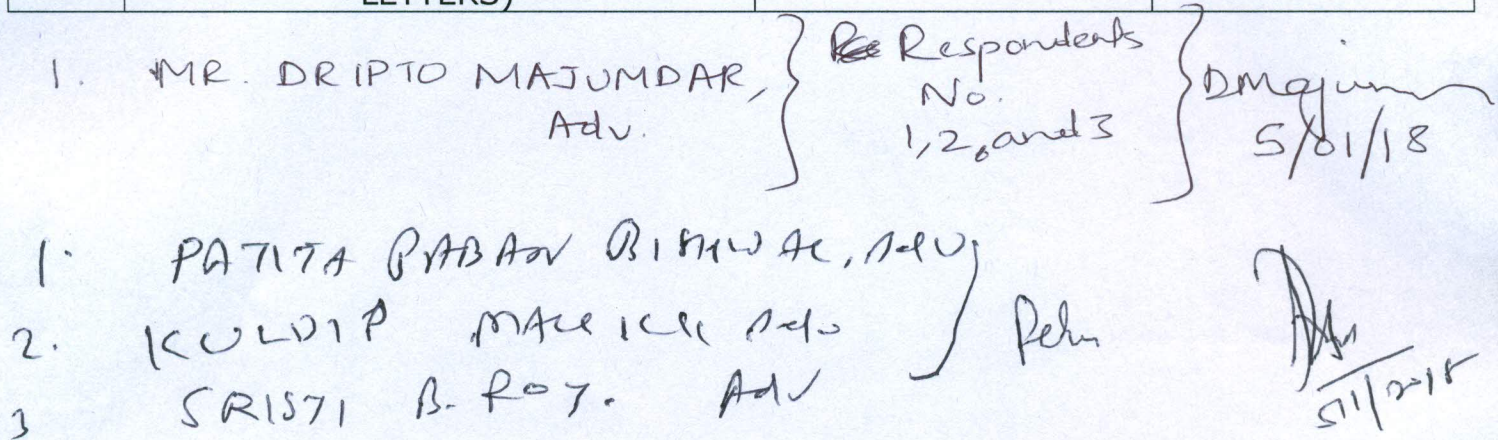 LETTERS)
1. MR. DRIPTO MAJUMDAR, Adv.
Respondents No. 1, 2, and 3
DMajum
5/01/18
1. PATITA PABAN BISHWAL, Adv
2. KULDIP MALLICK Adv
3 SRISTI B. ROY. Adv
5/1/2018